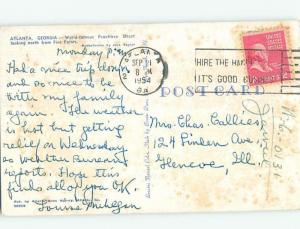 ATLANTA, GEORGIA — World-famous Peachtree Street
looking north from Five Points.
Monday P.M.
Had a nice trip down
so nice to be
with my family
again. The weather
is hot but getting
relief on Wednesday
as Weather Bureau
reports. Hope this
finds all of you OK.
Louise
ATLANTA
SEP 21
8 PM
1954
GA
HIRE THE
IT'S GOOD
POST CARD
Mrs. Chas. Callies
124 Linden Ave.
Glencoe, Ill.